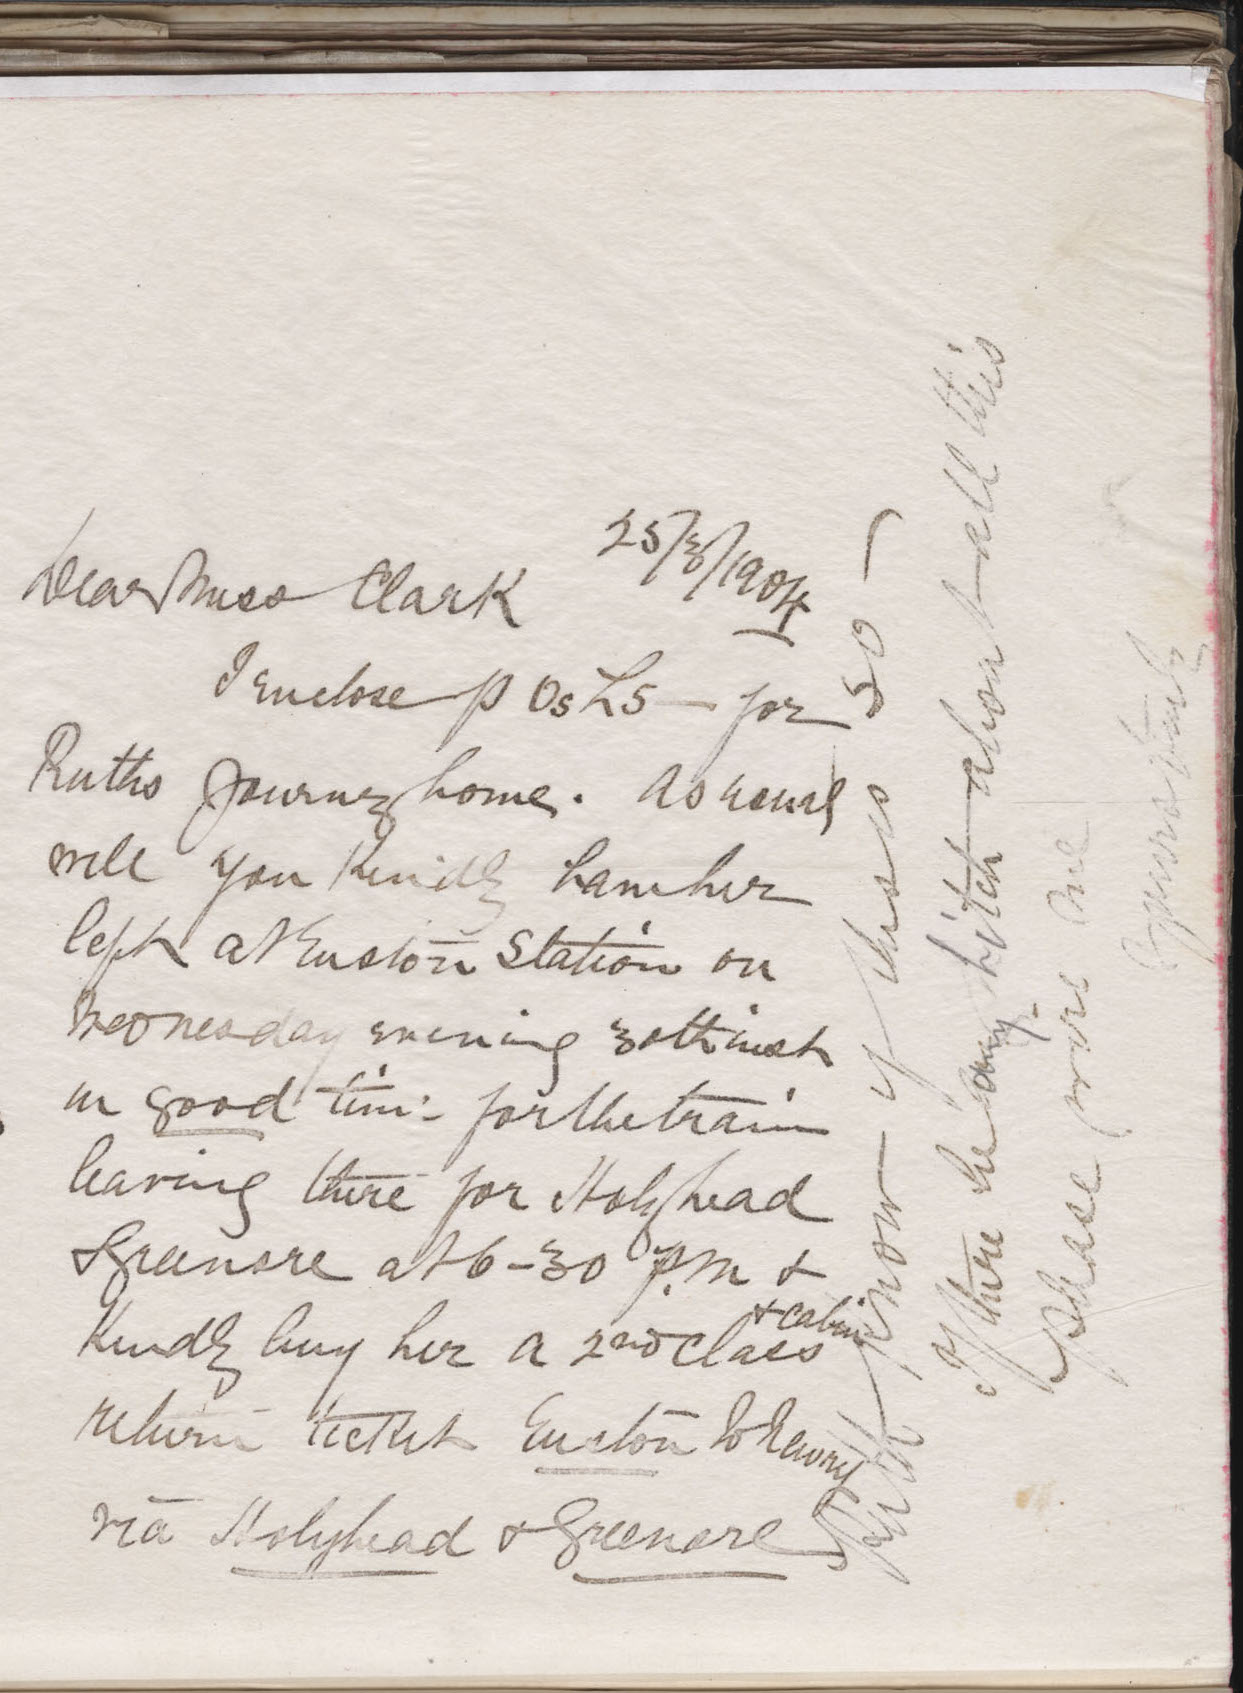 25/3/1904
Dear Miss Clark
I enclose P Os £5 — for
Ruths journey home. As usual
will you kindly have her
left at Euston Station on
Wednesday evening 30th inst
in good time for the train
leaving there for Holyhead
Greenore at 6-30 p.m &
Kindly buy her a 2nd class & cabin
return ticket Euston to Newry
via Holyhead & Greenore
Ruth know if this is so —
If there be any hitch about all this
please wire me
Yours truly